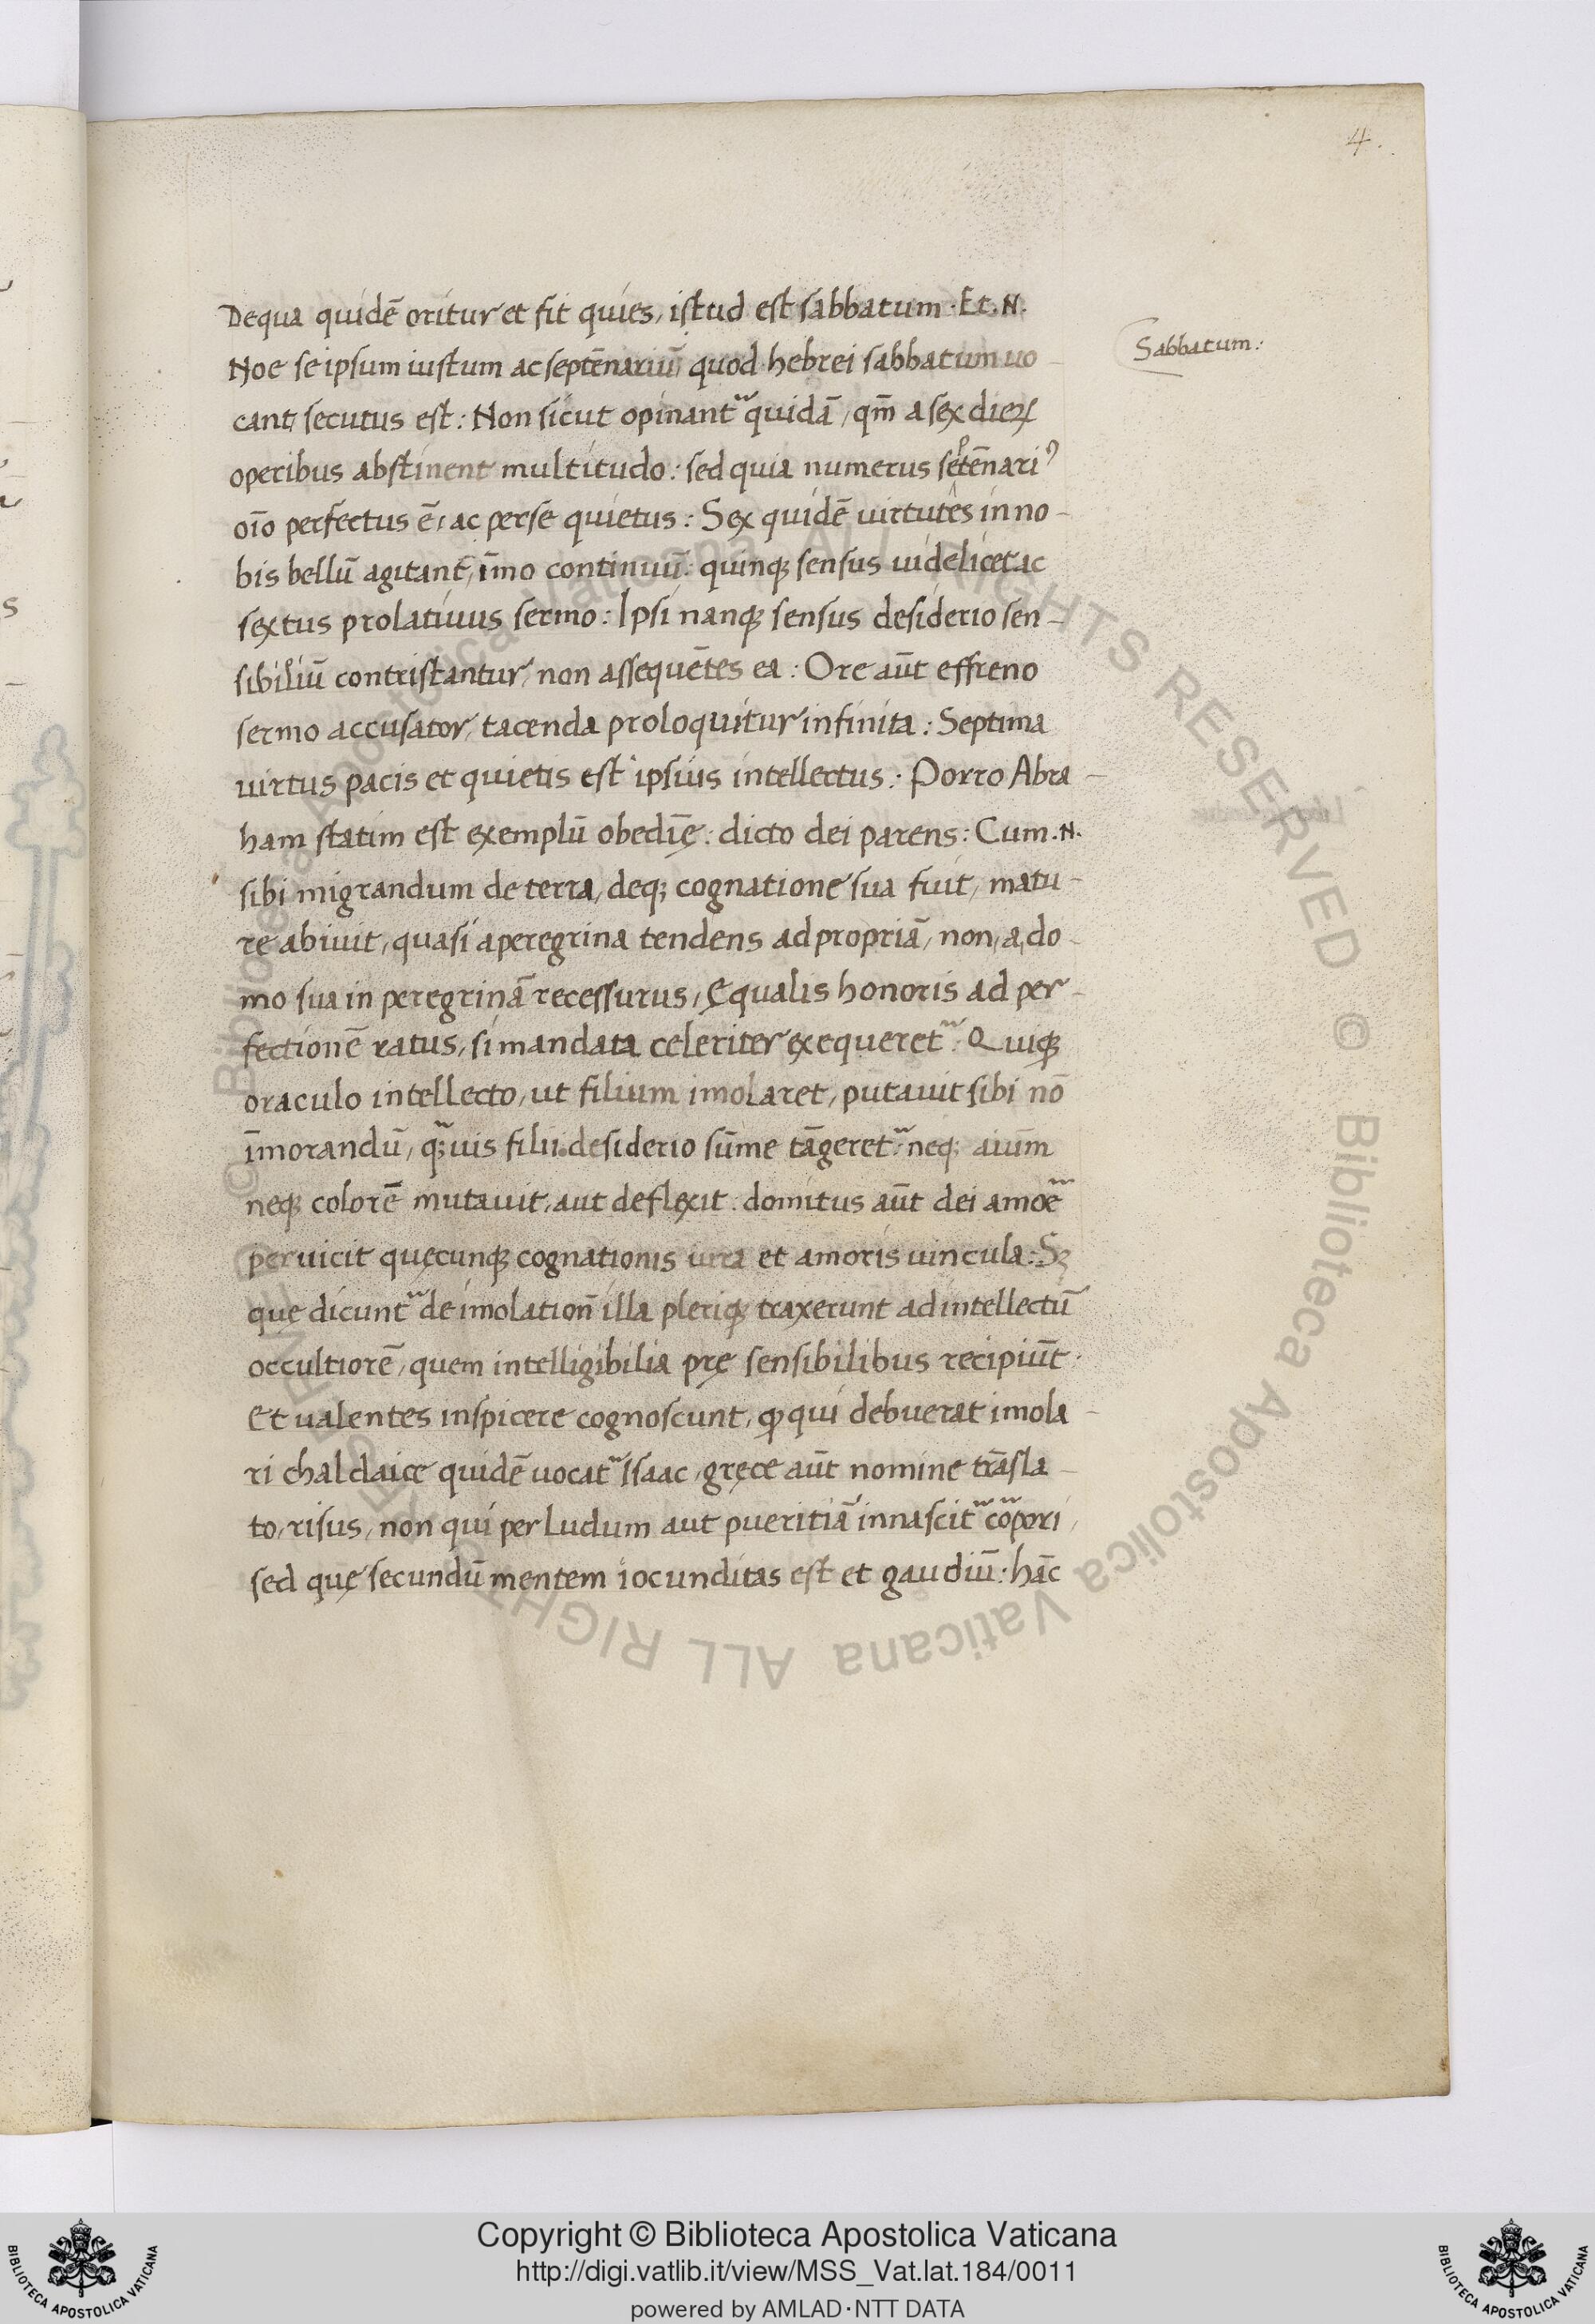 4.
De qua quidē oritur et fit quies, istud est sabbatum. Et. N.
Sabbatum:
Noe se ipsum iustum ac septēnariū quod hebrei sabbatum uo-
cant, secutus est: Non sicut opinant᷑ quidā, qm̄ a sex dieꝝ
operibus abstinent multitudo: sed quia numerus septēnariꝰ
oīo perfectus ē, ac per se quietus: Sex quidē uirtutes in no-
bis bellū agitant, īmo continuū: quinqꝫ sensus uidelicet ac
sextus prolatiuus sermo: Ipsi nanqꝫ sensus desiderio sen-
sibiliū contristantur, non assequētes ea: Ore aūt effreno
sermo accusator, tacenda proloquitur infinita: Septima
uirtus pacis et quietis est ipsius intellectus: Porro Abra-
ham statim est exemplū obedīę: dicto dei parens: Cum. N.
sibi migrandum de terra, deqꝫ cognatione sua fuit, matu-
re abiuit, quasi a peregrina tendens ad propriā, non, a, do-
mo sua in peregrinā recessurus, Ęqualis honoris ad per-
fectionē ratus, si mandata celeriter exequeret᷑: Quiqꝫ
oraculo intellecto, ut filium imolaret, putauit sibi nō
īmorandū, qꝫuis filii desiderio sūme tāgeret᷑: neqꝫ aium̄
neqꝫ colorē mutauit, aut deflexit: domitus aūt dei amoē
peruicit quęcunqꝫ cognationis iura et amoris uincula: Sꝫ
que dicunt᷑ de imolation̄ illa pleriqꝫ traxerunt ad intellectū
occultiorē, quem intelligibilia prę sensibilibus recipiūt.
Et ualentes inspicere cognoscunt, ꝙ qui debuerat imola-
ri chaldaice quidē uocat᷑ Isaac, gręce aūt nomine trāsla-
to, risus, non qui per ludum aut pueritiā innascit᷑ cōpori,
sed quę secundū mentem iocunditas est et gaudiū: hāc
Copyright © Biblioteca Apostolica Vaticana
http://digi.vatlib.it/view/MSS_Vat.lat.184/0011
powered by AMLAD·NTT DATA
BIBLIOTECA APOSTOLICA VATICANA
BIBLIOTECA APOSTOLICA VATICANA
© Biblioteca Apostolica Vaticana ALL RIGHTS RESERVED © Biblioteca Apostolica Vaticana ALL RIGHTS RESERVED